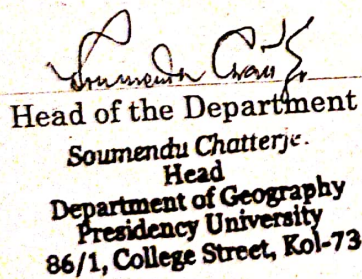 Head of the Department
Soumendu Chatterje.
Head
Department of Geography
Presidency University
86/1, College Street, Kol-73